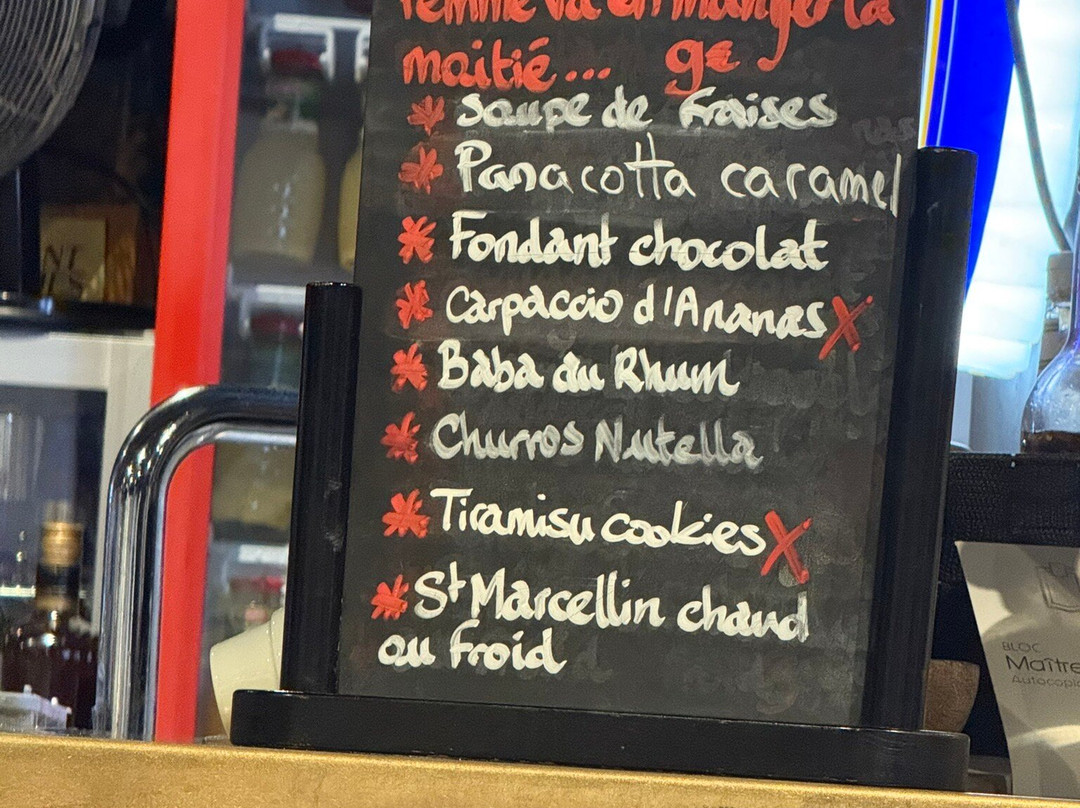 femme va en manger la
moitié... 9€
* Soupe de Fraises
* Panacotta caramel
* Fondant chocolat
* Carpaccio d'Ananas X
* Baba au Rhum
* Churros Nutella
* Tiramisu cookies X
* St Marcellin chaud
ou froid
BLOC
Maître